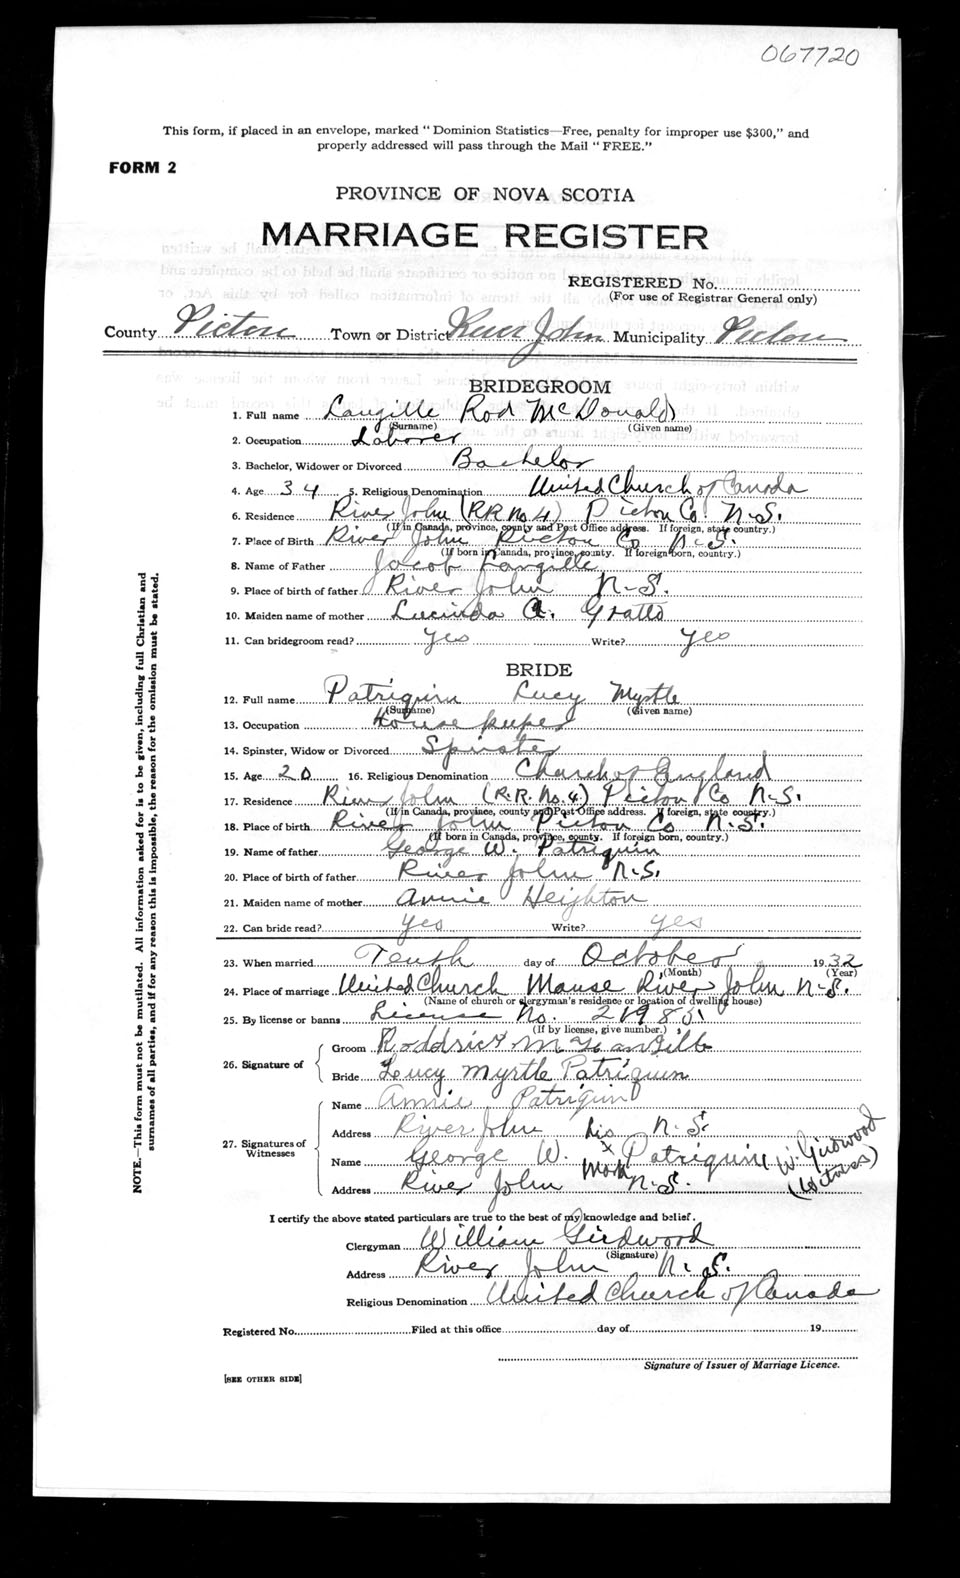 067720
This form, if placed in an envelope, marked "Dominion Statistics—Free, penalty for improper use $300," and
properly addressed will pass through the Mail "FREE."
FORM 2
PROVINCE OF NOVA SCOTIA
MARRIAGE REGISTER
REGISTERED No.
(For use of Registrar General only)
County Pictou Town or District River John Municipality Pictou
BRIDEGROOM
1. Full name Langille Rod McDonald
(Surname) (Given name)
2. Occupation Laborer
3. Bachelor, Widower or Divorced Bachelor
4. Age 34 5. Religious Denomination United Church of Canada
6. Residence River John (RR No 4) Pictou Co. N.S.
(If in Canada, province, county and Post Office address. If foreign, state country.)
7. Place of Birth River John Pictou Co N.S.
(If born in Canada, province, county. If foreign born, country.)
8. Name of Father Jacob Langille
9. Place of birth of father River John N.S.
10. Maiden name of mother Lucinda A. Gratto
11. Can bridegroom read? yes Write? yes
BRIDE
12. Full name Patriquin Lucy Myrtle
(Surname) (Given name)
13. Occupation Housekeeper
14. Spinster, Widow or Divorced Spinster
15. Age 20 16. Religious Denomination Church of England
17. Residence River John (R.R. No. 4) Pictou Co N.S.
(If in Canada, province, county and Post Office address. If foreign, state country.)
18. Place of birth River John Pictou Co N.S.
(If born in Canada, province, county. If foreign born, country.)
19. Name of father George W. Patriquin
20. Place of birth of father River John N.S.
21. Maiden name of mother Annie Heighton
22. Can bride read? yes Write? yes
23. When married Tenth day of October 1932
(Month) (Year)
24. Place of marriage United Church Manse River John N.S.
(Name of church or clergyman's residence or location of dwelling house)
25. By license or banns License No. 21985
(If by license, give number.)
26. Signature of
Groom Roddrick
Bride Lucy Myrtle Patriquin
27. Signatures of Witnesses
Name Annie Patriquin
Address River John N.S.
Name George W. his x mark Patriquin W. Girdwood (Witness)
Address River John N.S.
I certify the above stated particulars are true to the best of my knowledge and belief.
Clergyman William Girdwood
(Signature)
Address River John N.S.
Religious Denomination United Church of Canada
Registered No. Filed at this office day of 19
Signature of Issuer of Marriage Licence.
[SEE OTHER SIDE]
NOTE.—This form must not be mutilated. All information asked for is to be given, including full Christian and
surnames of all parties, and if for any reason this is impossible, the reason for the omission must be stated.